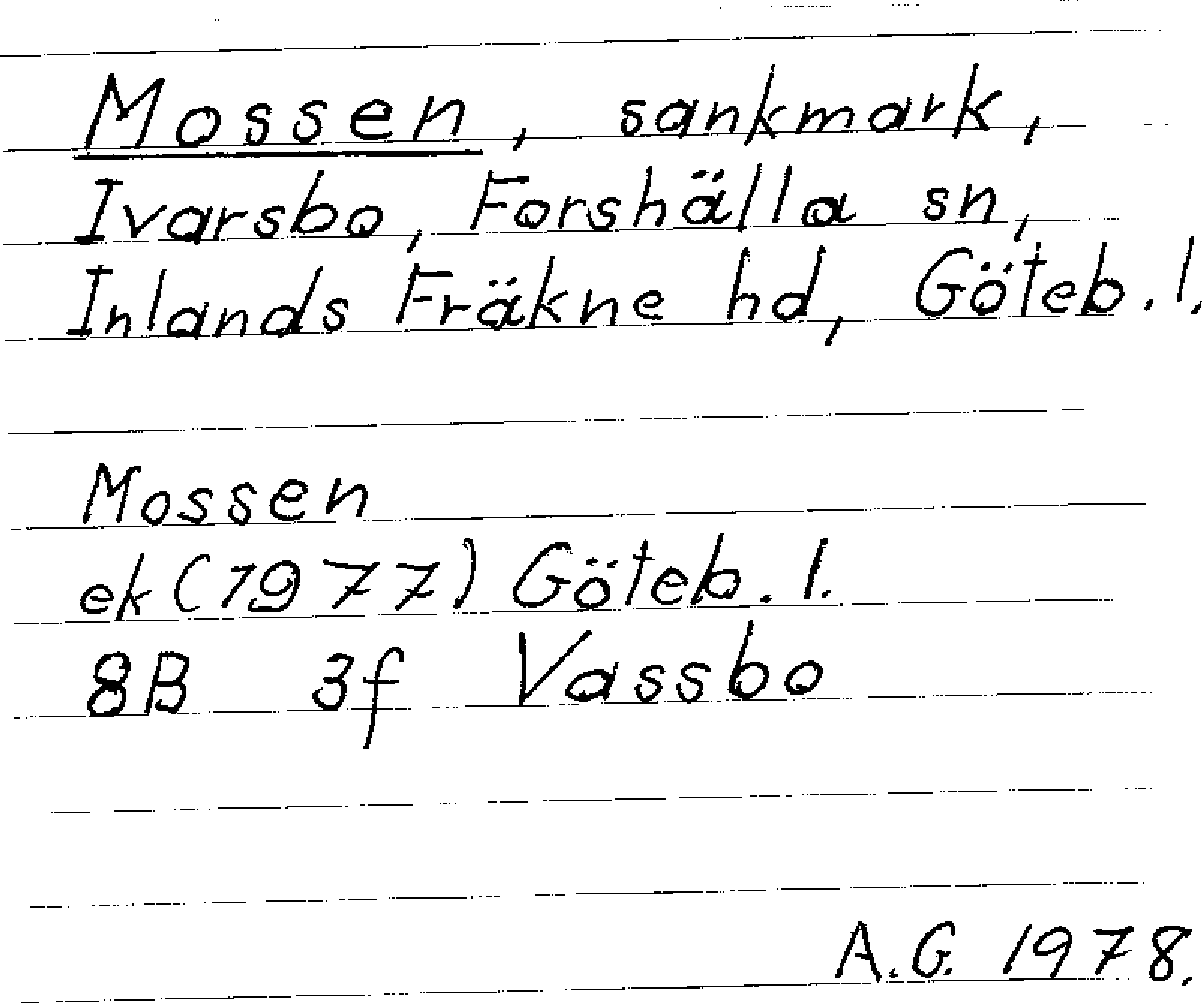 Mossen, sankmark,
Ivarsbo, Forshälla sn,
Inlands Fräkne hd, Göteb. l.
Mossen
ek (1977) Göteb. l.
8B 3f Vassbo
A.G. 1978.